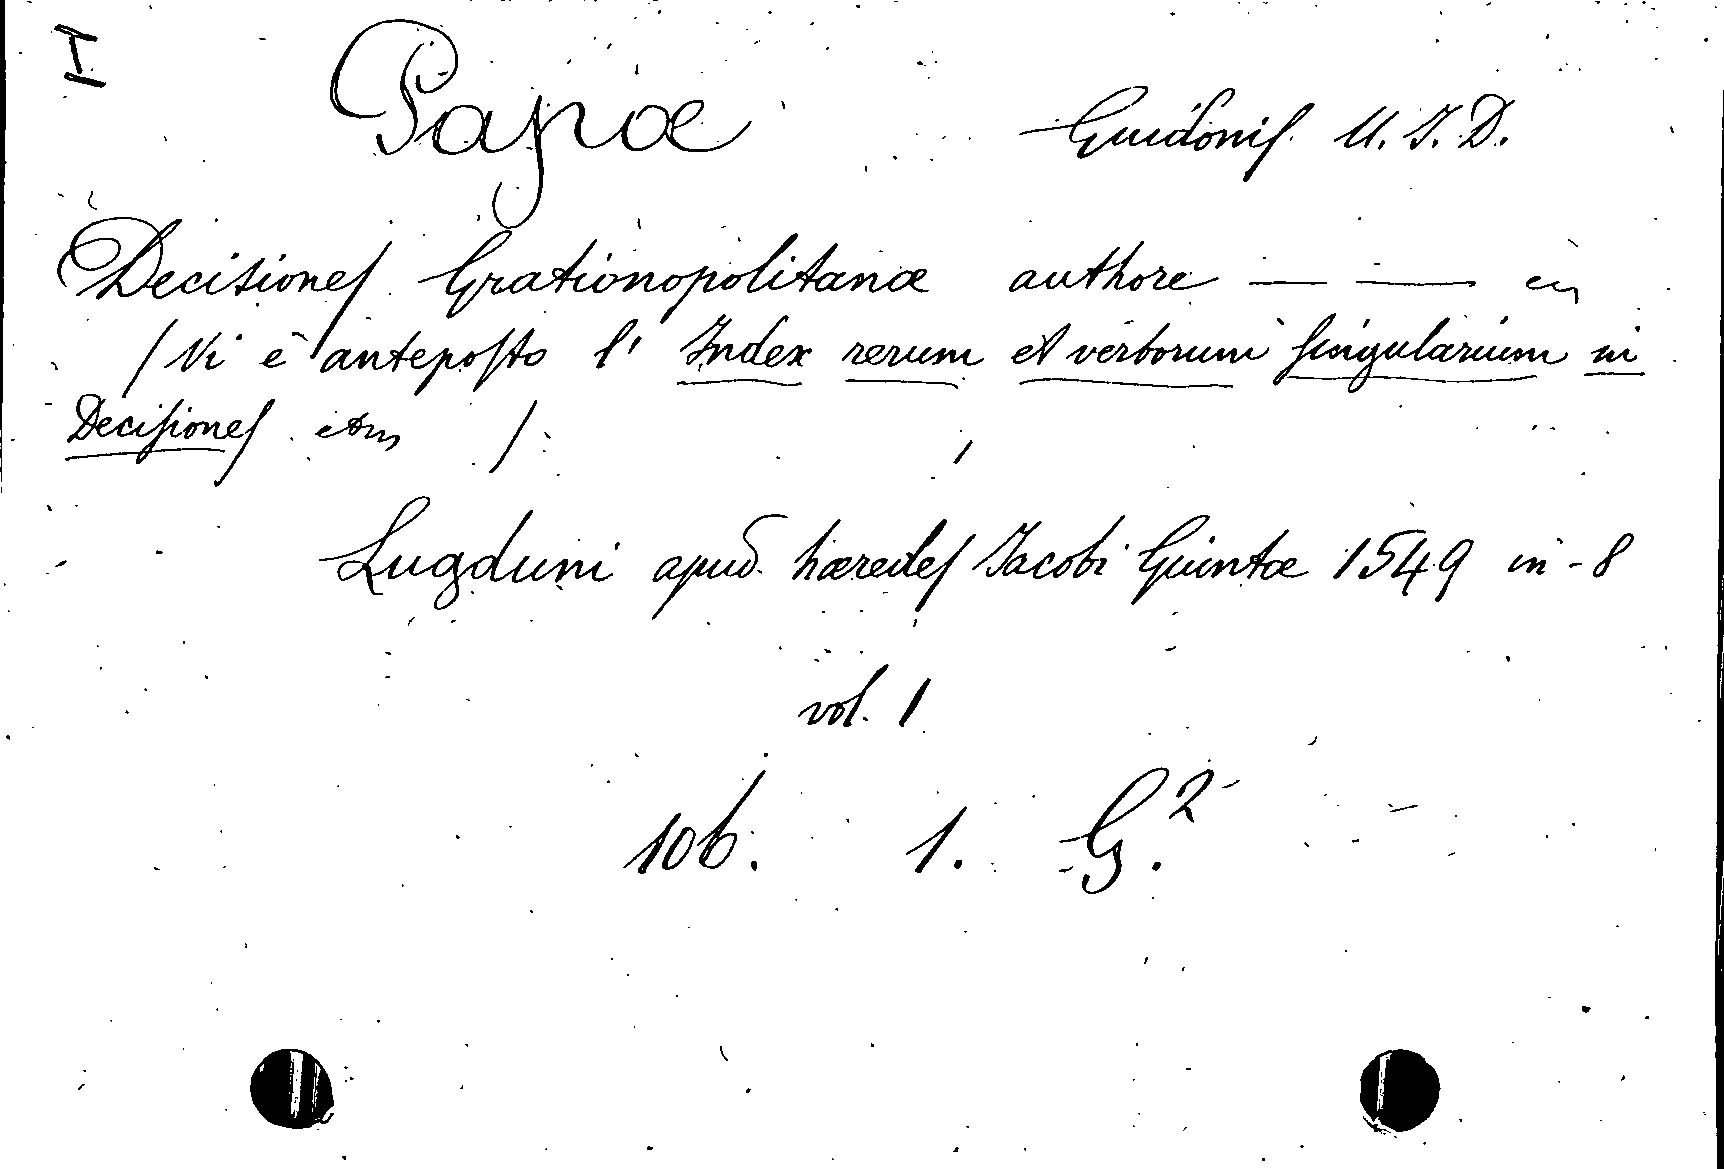 I
Papæ Guidonis U. J. D.
Decisiones Grationopolitanæ authore — —
/ Vi è anteposto l' Index rerum et verborum singularium in
Decisiones /
Lugduni apud hæredes Jacobi Giuntæ 1549 in-8
vol. 1
106. 1. G.²